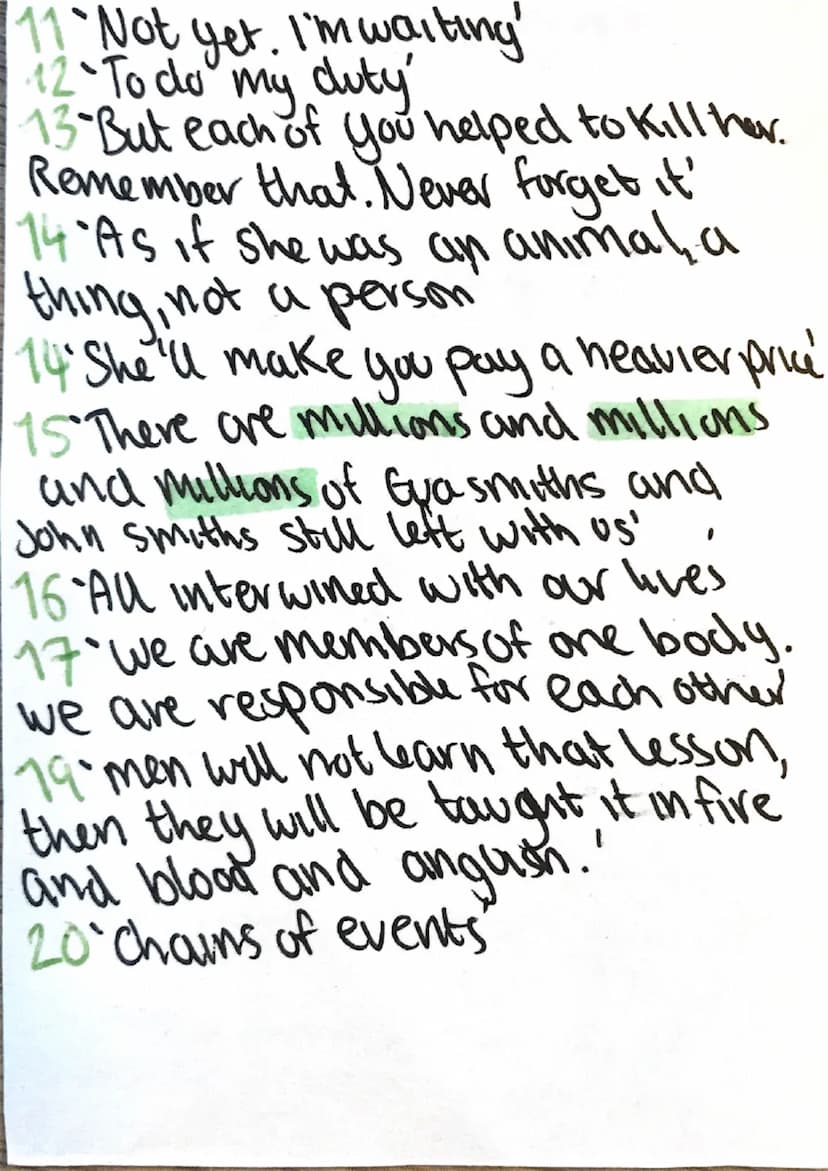 11 'Not yet. I'm waiting'
12 'To do my duty'
13 'But each of you helped to kill her.
Remember that. Never forget it'
14 'As if she was an animal, a
thing, not a person
14 'She'll make you pay a heavier price'
15 'There are millions and millions
and millions of Eva smiths and
John smiths still left with us'
16 'All interwined with our lives'
17 'We are members of one body.
we are responsible for each other'
19 'men will not learn that lesson,
then they will be taught it in fire
and blood and anguish.'
20 'Chains of events'